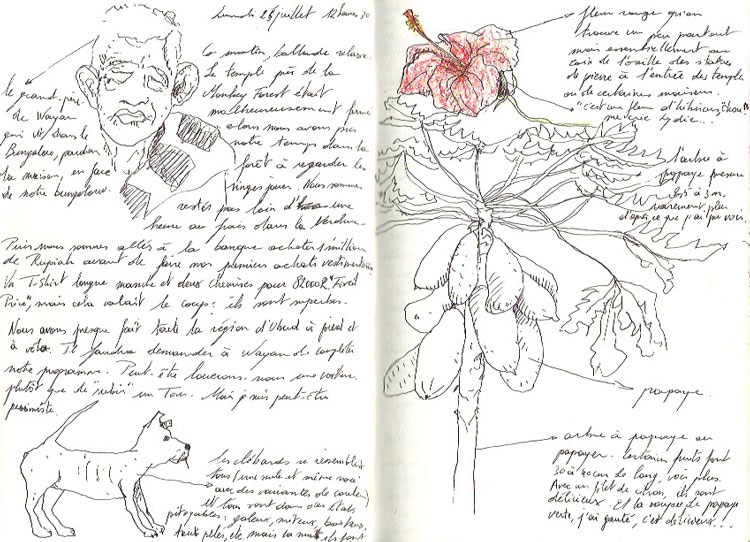 Lundi 25 juillet 12 heures 30
Ce matin, ballade relaxe.
Le temple près de la
Monkey Forest était
malheureusement fermé
alors nous avons passé
notre temps dans la
forêt à regarder les
singes jouer. Nous sommes
restés pas loin d'une
heure au frais dans la verdure.
le grand-père
de Wayan
qui vit dans le
Bungalow, pardon
la maison, en face
de notre bungalow.
Puis nous sommes allés à la banque acheter 1 million
de Rupiah avant de faire nos premiers achats vestimentaires
Un T-Shirt longue manche et deux chemises pour 82000 R "Fixed
Price", mais cela valait le coup : ils sont superbes.
Nous avons presque fait toute la région d'Ubud à pied et
à vélo. Il faudra demander à Wayan de compléter
notre programme. Peut-être louerons-nous une voiture
plutôt que de "subir" un Tour. Mais je suis peut-être
pessimiste.
les clébards se ressemblent
tous (une seule et même race
avec des variantes de couleur)
et tous sont dans des états
pitoyables : galeux, miteux, boiteux,
tout pelés, etc mais la nuit ils font
fleur rouge qu'on
trouve un peu partout
mais essentiellement au
coin de l'oreille des statues
de pierre à l'entrée des temples
ou de certaines maisons.
"c'est une fleur d'hibiscus,
me crie Lydie...
l'arbre à
papaye mesure
2m5 à 3 m,
rarement plus
d'après ce que j'ai pu voir.
papaye.
arbre à papaye ou
papayer. Certains fruits font
30 à 40 cm de long, voir plus.
Avec un filet de citron, ils sont
délicieux. Et la soupe de papaye
verte, j'ai goûté, c'est délicieux...